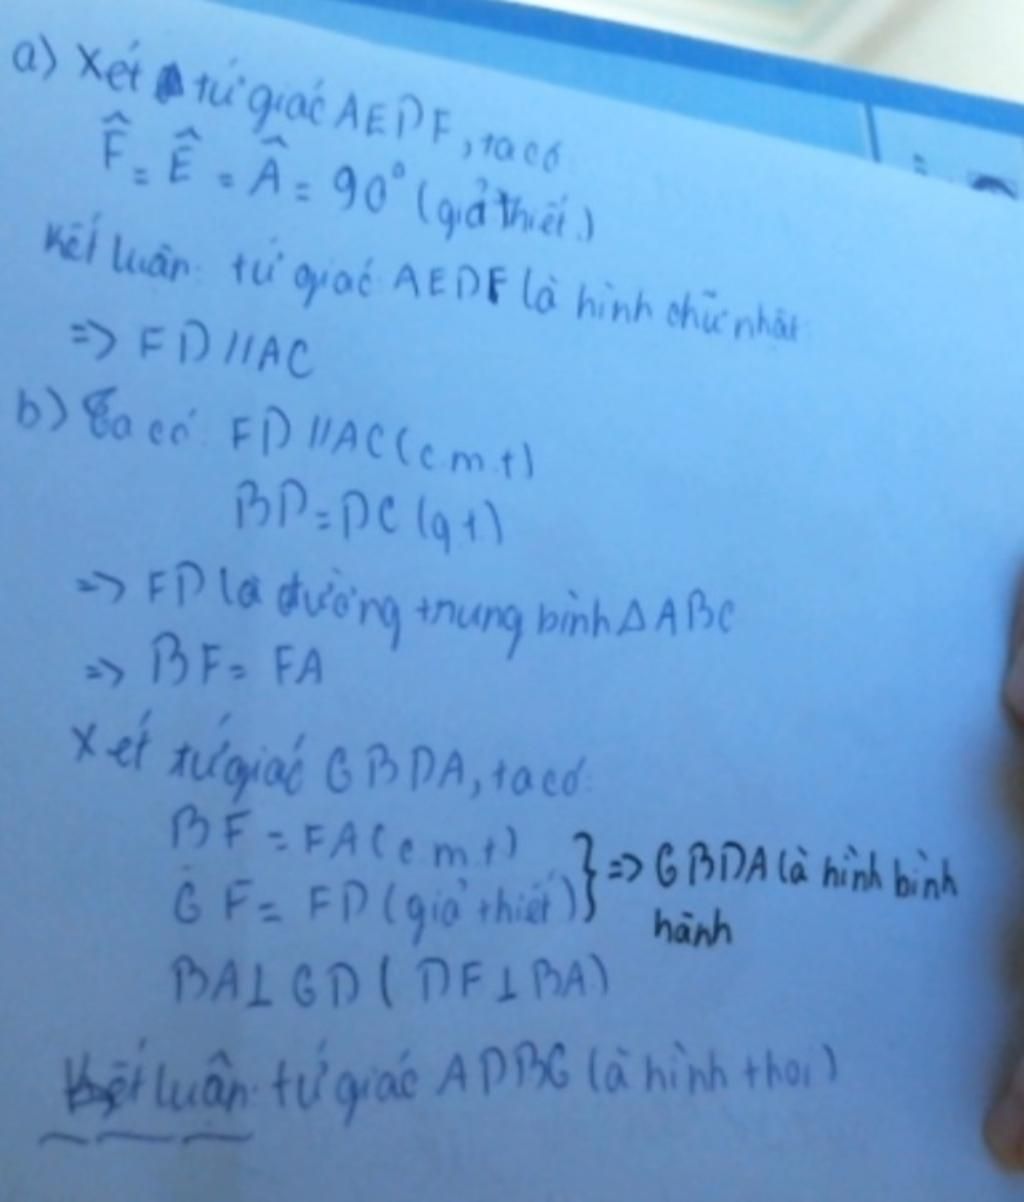 a) Xét tứ giác AEDF, ta có
F̂ = Ê = Â = 90° (giả thiết)
Kết luận: tứ giác AEDF là hình chữ nhật
=> FD // AC
b) Ta có FD // AC (c.m.t)
BD = DC (gt)
=> FD là đường trung bình △ABC
=> BF = FA
Xét tứ giác GBDA, ta có:
BF = FA (c m t)
GF = FD (giả thiết) } => GBDA là hình bình
hành
BA ⊥ GD ( DF ⊥ BA)
Kết luận: tứ giác ADBG là hình thoi)